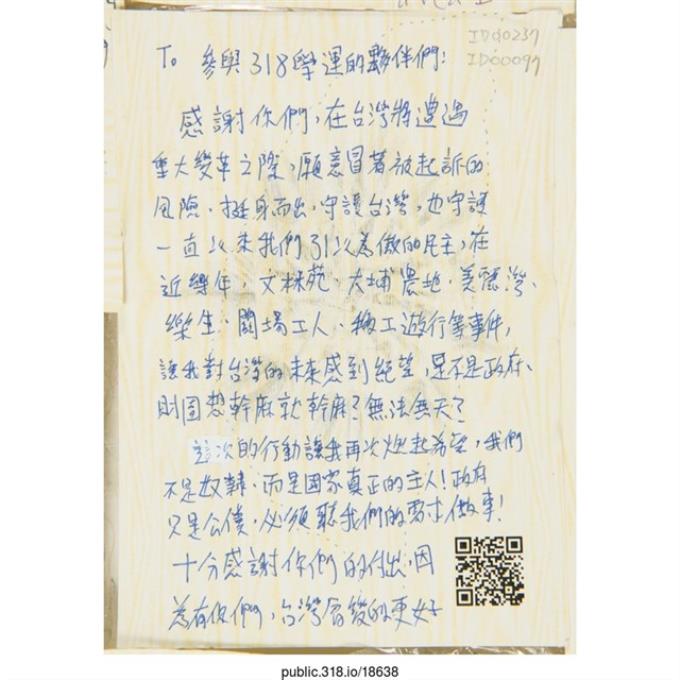 ID00237
ID00097
To 參與318學運的夥伴們:
感謝你們,在台灣將遭遇
重大變革之際,願意冒著被起訴的
風險、挺身而出,守護台灣,也守護
一直以來我們引以為傲的民主,在
近幾年,文林苑、大埔農地、美麗灣、
樂生、關場工人、移工遊行等事件,
讓我對台灣的未來感到絕望,是不是政府、
財團想幹麻就幹麻?無法無天?
這次的行動讓我再次燃起希望,我們
不是奴隸,而是國家真正的主人!政府
只是公僕,必須聽我們的需求做事!
十分感謝你們的付出,因
為有你們,台灣會變的更好
public.318.io/18638